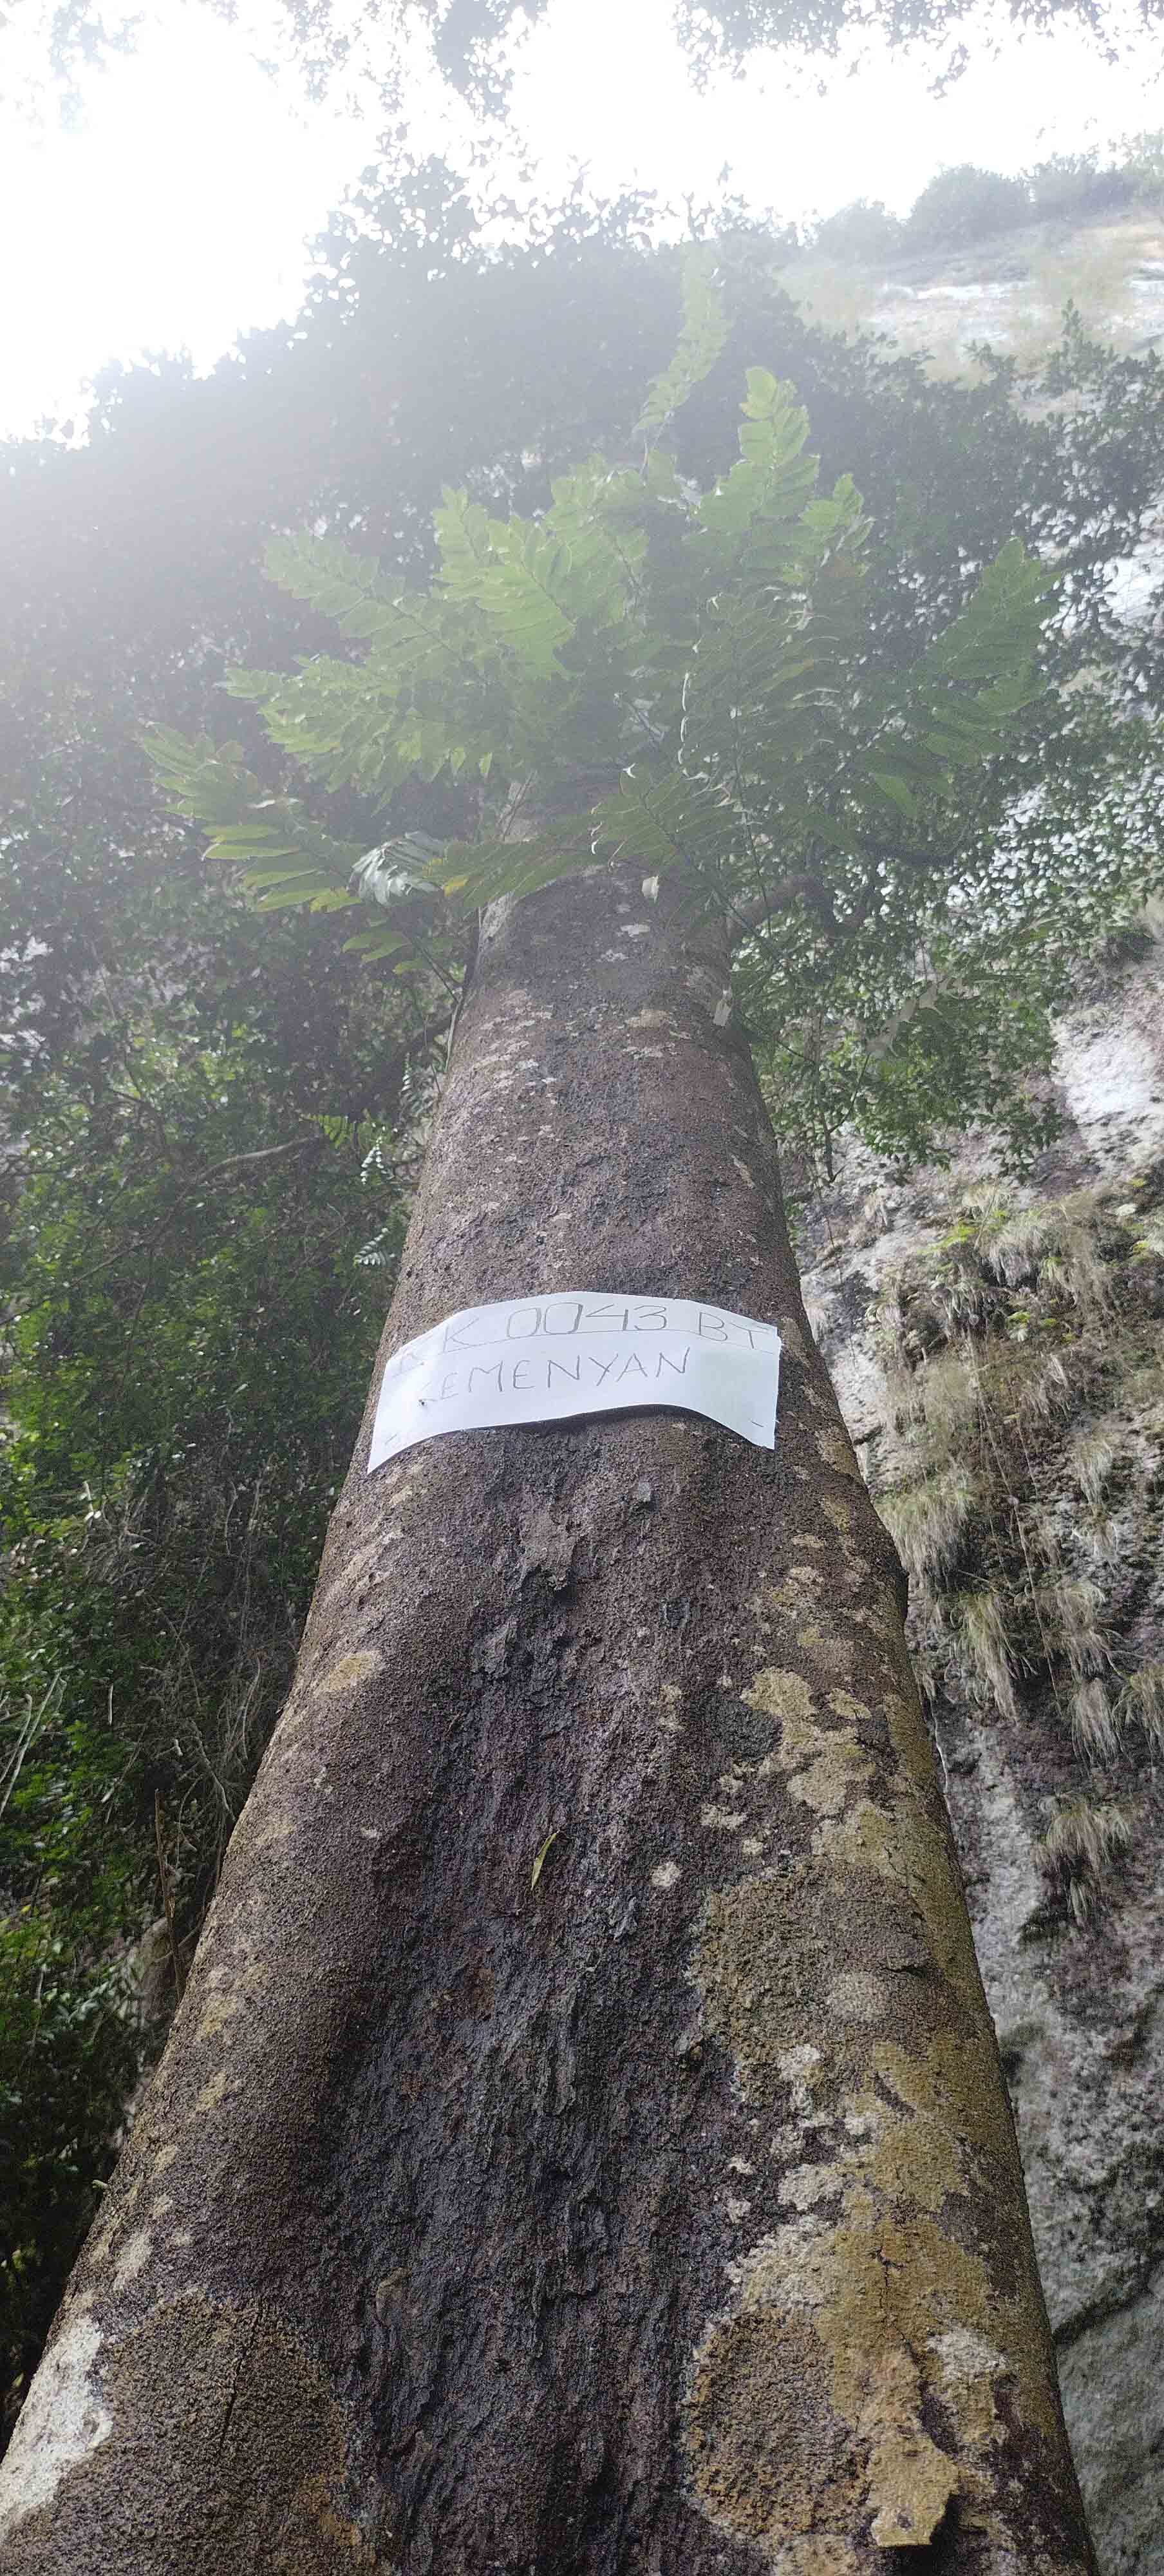 KK 0043 BT
KEMENYAN